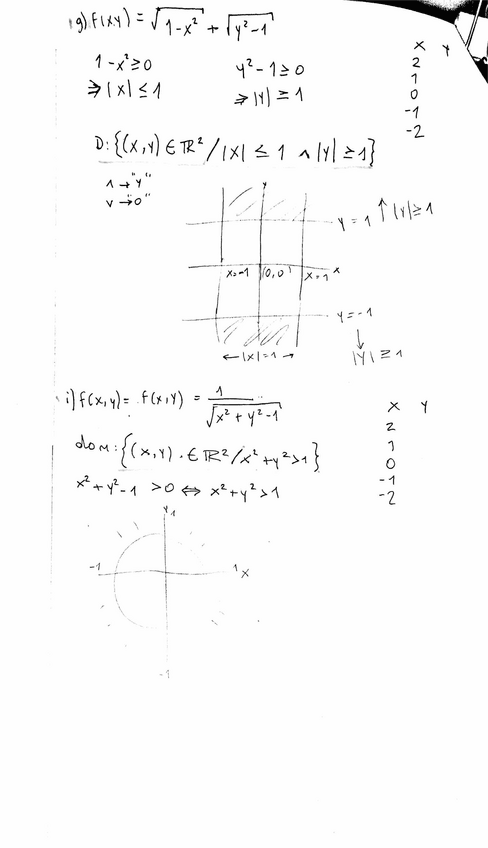 g) f(x,y) = √(1-x²) + √(y²-1)
1-x² ≥ 0   y²-1 ≥ 0
⇒ |x| ≤ 1   ⇒ |y| ≥ 1
x y
2
1
0
-1
-2
D: {(x,y) ∈ ℝ² / |x| ≤ 1 ∧ |y| ≥ 1}
∧ → "y"
∨ → "o"
y
y = 1 ↑ |y| ≥ 1
x=-1 (0,0) x=1 x
y=-1
↓
← |x|=1 →
|y| ≥ 1
i) f(x,y) = f(x,y) = 1/√(x²+y²-1)
x y
2
1
0
-1
-2
dom: {(x,y) ∈ ℝ² / x²+y²>1}
x²+y²-1 >0 ⇔ x²+y²>1
y 1
-1 1 x
-1